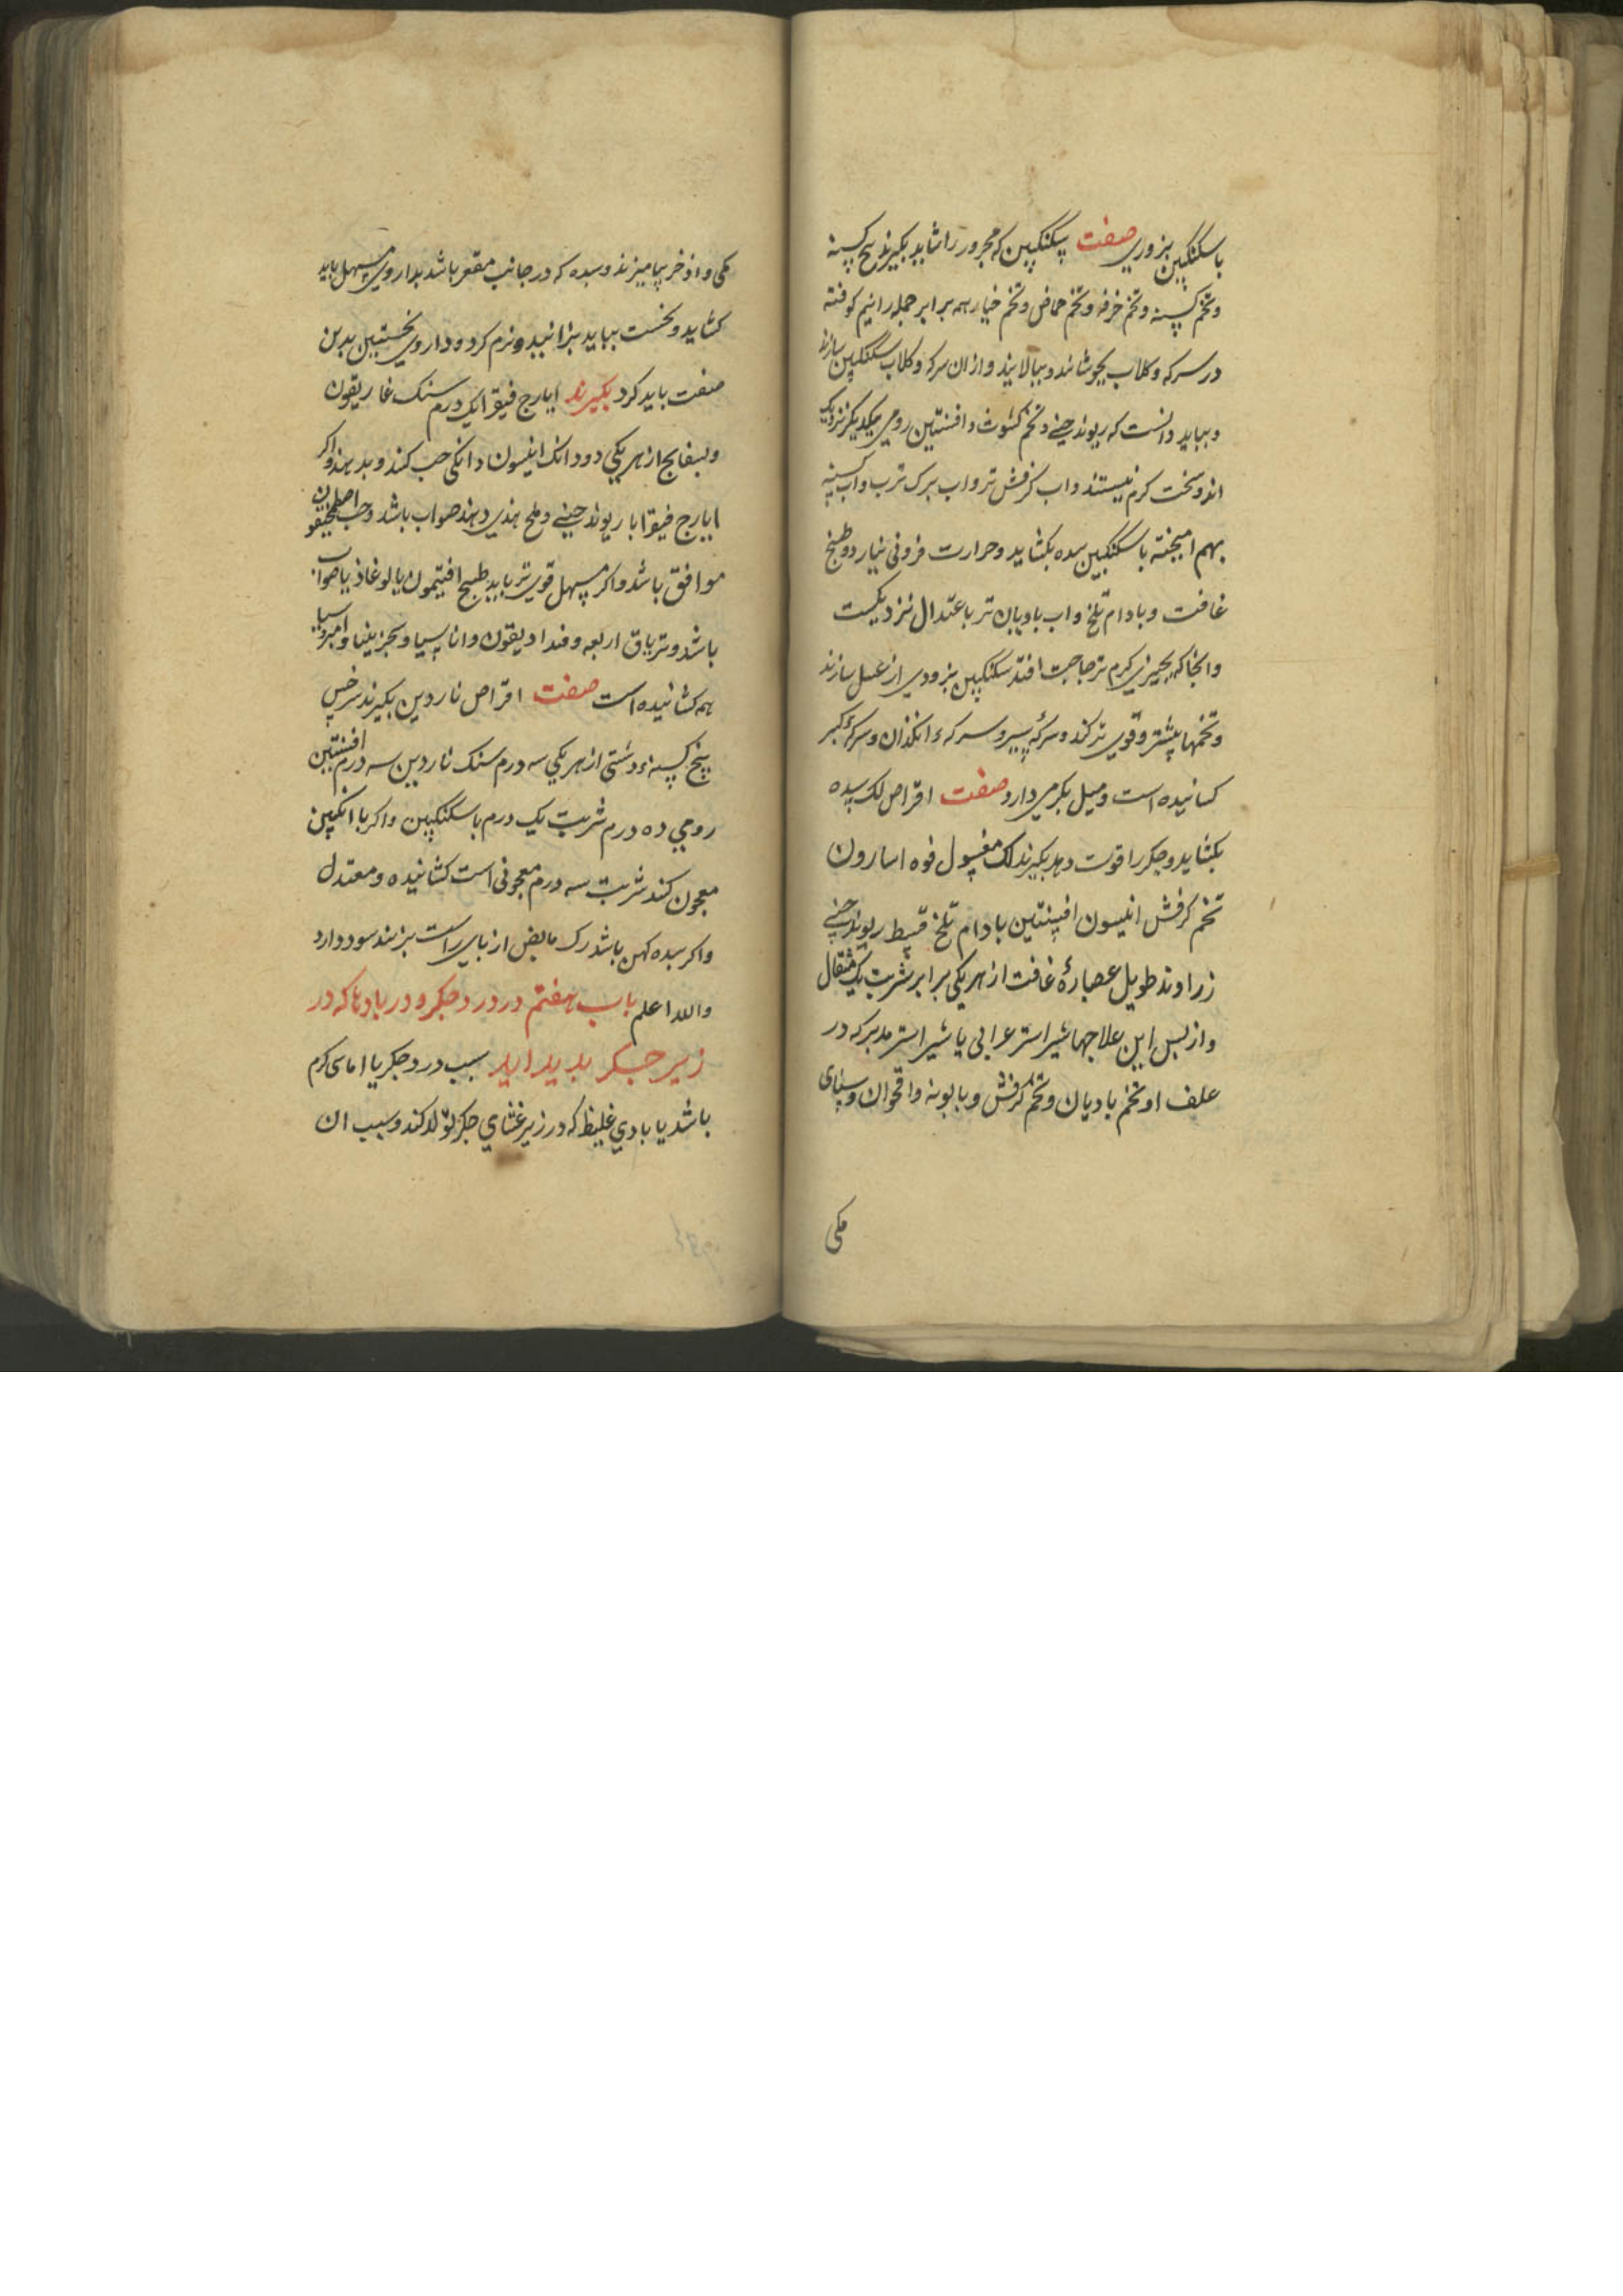 با سکنکبین بزوری صفت سکنکبین که محرور را شاید بکیرند بیخ کسنه
و تخم کسنه و تخم خرفه و تخم حماض و تخم خیار همه برابر جمله را نیم کوفته
در سرکه و کلاب بجوشانند و ببالایند و از ان سرکه و کلاب سکنکبین سازند
و بباید دانست که ریوند چینی و تخم کشوث و افسنتین رومی بیکدیکر نزدیک
اند و سخت کرم نیستند و اب کرفش تر و اب برک ترب و اب کسنه
بهم امیخته با سکنکبین سده بکشاید و حرارت فزونی نیارد و طبیخ
غافت و بادام تلخ و اب بادیان تر باعتدال نزدیکست
و انجا که بچیزی کرم تر حاجت افتد سکنکبین بزوری از عسل سازند
و تخمها بیشتر و قوی تر کند و سرکهٔ سیر و سرکهء انکذان و سرکهٔ کبر
کشانیده است و میل بکرمی دارد صفت اقراص لک سده
بکشاید و جکر را قوت دهد بکیرند لک مغسول فوه اسارون
تخم کرفش انیسون افسنتین بادام تلخ قسط ریوند چینی
زراوند طویل عصارهٔ غافت از هر یکی برابر شربت یک مثقال
و از بس این علاجها شیر اشتر عرابی یا شیر اشتر مدبر که در
علف او تخم بادیان و تخم کرفش و بابونه و اقحوان و سنای
مکی
مکی و اذخر بیامیزند و سده که در جانب مقعر باشد بداروی مسهل باید
کشاید و نخست بباید بزانید و نرم کرد و داروی نخستین بدین
صفت باید کرد بکیرند ایارج فیقرا یک درم سنک غاریقون
و بسفایج از هر یکی دو دانک انیسون دانکی حب کند و بدهند و اکر
ایارج فیقرا با ریوند چینی و ملح هندی دهند صواب باشد و حب اصطمخیقون
موافق باشد و اکر مسهل قوی تر باید طبیخ افتیمون یا لوغاذیا صواب
باشد و تریاق اربعه و فندادیقون و اناسیا و سجزینیا و امروسیا
همه کشانیده است صفت اقراص ناردین بکیرند سرخس
بیخ کسنهء دشتی از هر یکی سه درم سنک ناردین سه درم افسنتین
رومی ده درم شربت یک درم با سکنکبین و اکر با انکبین
معجون کنند شربت سه درم معجونی است کشانیده و معتدل
و اکر سده کهن باشد رک مابض از بای راست بزنند سود دارد
والله اعلم باب هفتم در درد جکر و در بادها که در
زیر جکر بدید اید سبب درد جکر یا اماسی کرم
باشد یا بادی غلیظ که در زیر غشای جکر تولد کند و سبب ان